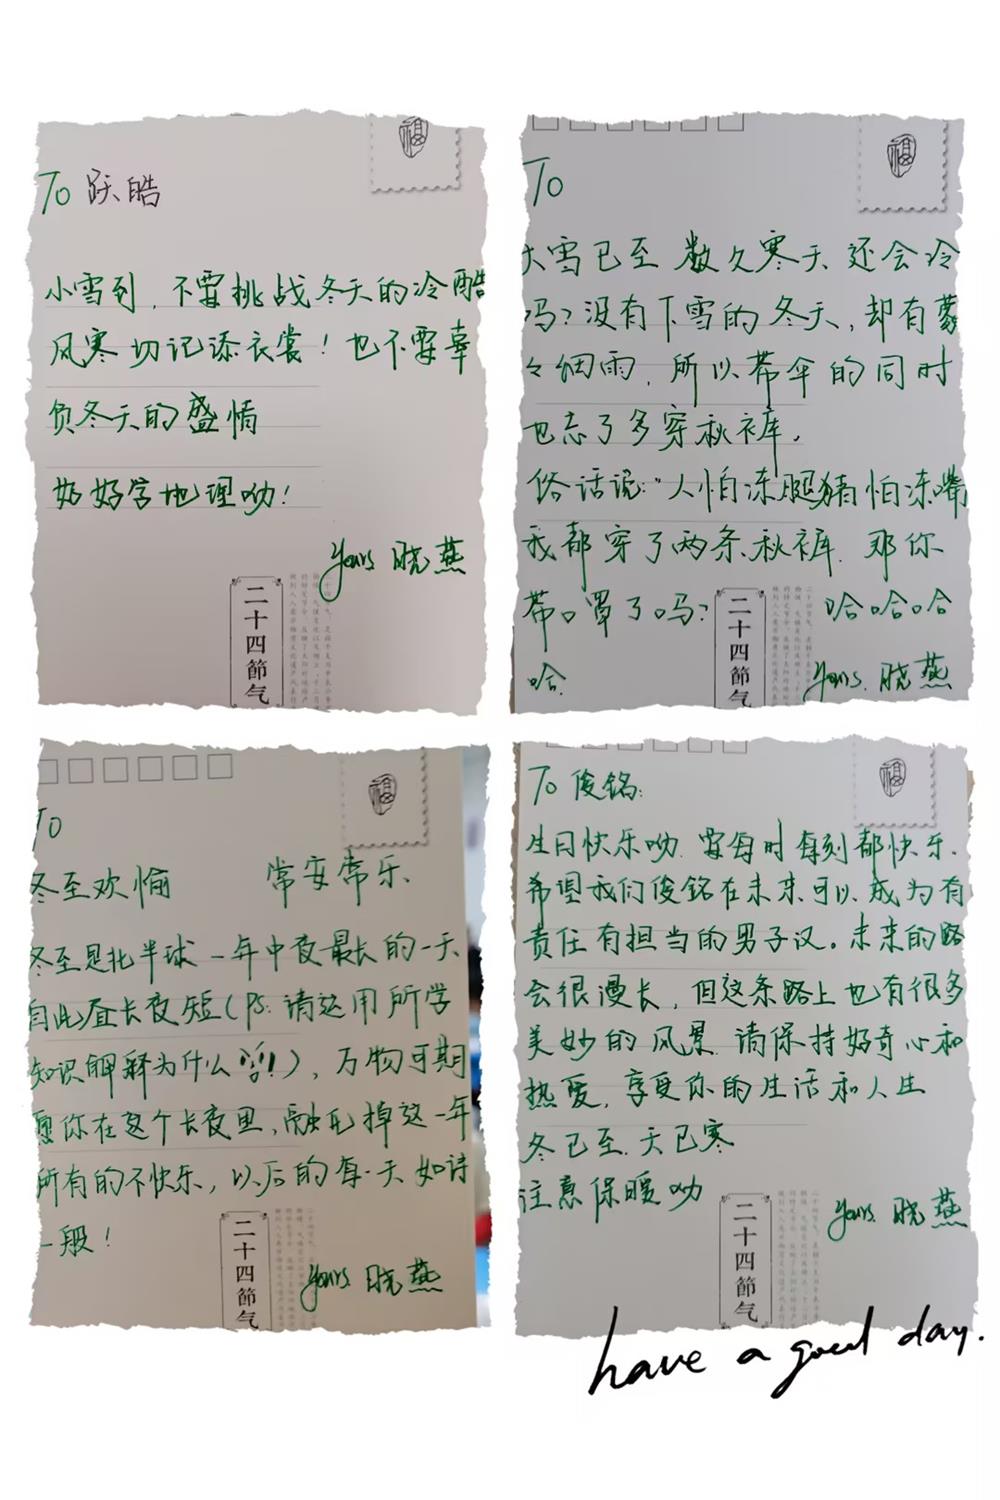 福
To 跃皓
小雪到，不要挑战冬天的冷酷
风寒切记添衣裳！也不要辜
负冬天的盛情
好好学地理呦！
yours 晓燕
二十四節气
福
To
大雪已至 数久寒天 还会冷
吗？没有下雪的冬天，却有蒙
々烟雨，所以带伞的同时
也忘了多穿秋裤，
俗话说："人怕冻腿猪怕冻嘴
我都穿了两条秋裤．那你
带口罩了吗？ 哈哈哈
哈．
yours. 晓燕
二十四節气
福
To
冬至欢愉 常安常乐．
冬至是北半球一年中夜最长的一天
自此昼长夜短（Ps: 请运用所学
知识解释为什么），万物可期
愿你在这个长夜里，融化掉这一年
所有的不快乐，以后的每一天如诗
一般！
yours. 晓燕
二十四節气
福
To 俊铭：
生日快乐呦．要每时每刻都快乐．
希望我们俊铭在未来可以成为有
责任有担当的男子汉。未来的路
会很漫长，但这条路上也有很多
美妙的风景．请保持好奇心和
热爱，享受你的生活和人生
冬已至．天已寒
注意保暖呦
yours. 晓燕
二十四節气
have a good day.